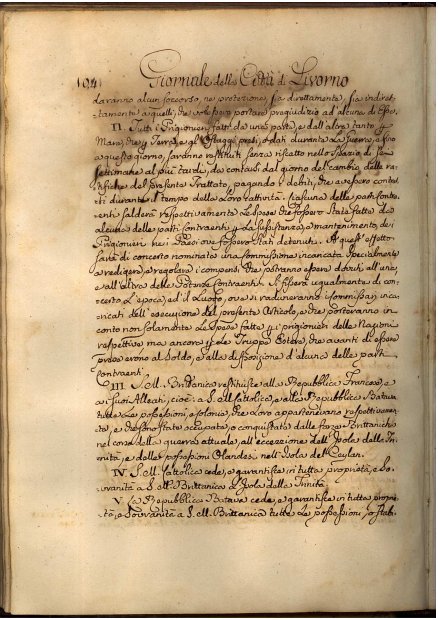 194 Giornale della Città di Livorno
daranno alcun soccorso, ne protezione, sia direttamente, sia indiret-
tamente a quelli, che volessero portare pregiudizio ad alcuna di Esse.
II. Tutti i Prigionieri fatti da una parte, e dall'altra tanto p
Mare, che p Terra, e gl'Ostaggi presi, o dati durante la Guerra, e fino
a questo giorno, saranno restituiti senza riscatto nello spazio di sei
settimane al più tardi, da contarsi dal giorno del cambio delle ra-
tifiche del presente Trattato, pagando i debiti, che avessero contra-
ti durante il tempo della loro cattività. Ciascuna delle parti contra-
enti salderà respettivamente le spese che fossero state fatte da
alcuna delle parti contraenti p la sussistenza, e mantenimento dei
Prigionieri nei Paesi ove fossero stati detenuti. A quest'effetto
sarà di concerto nominata una Commissione incaricata specialmente
a redigere, e regolare i compensi che potranno essere dovuti all'una,
e all'altra delle Potenze contraenti. Si fisserà ugualmente di con-
certo l'epoca, ed il Luogo, ove si raduneranno i Commissarj inca-
ricati dell'esecuzione del presente Articolo, e che porteranno in
conto non solamente le spese fatte p i prigionieri delle Nazioni
respettive ma ancora p le Truppe Estere, che avanti di essere
prese erono al soldo, e alla disposizione d'alcuna delle parti
contraenti.
III. S. M. Brittanica restituisce alla Repubblica Francese, e
a' suoi Alleati, cioè: a S. M. Cattolica, e alla Repubblica Batava
tutte le possessioni, e Colonie, che loro appartenevano respettivamen-
te, e che sono state occupate, o conquistate dalle forze Brittaniche
nel corso della guerra attuale, all'eccezione dell'Isola della Tri-
nità, e delle possessioni Olandesi nell'Isola del Ceylan.
IV. S. M. Cattolica cede, e garantisce in tutta proprietà, e So-
vranità a S. M. Brittanica l'Isola della Trinità.
V. La Repubblica Batava cede, e garantisce in tutta proprie-
tà, e Sovranità a S. M. Brittanica tutte le possessioni, e stabi-